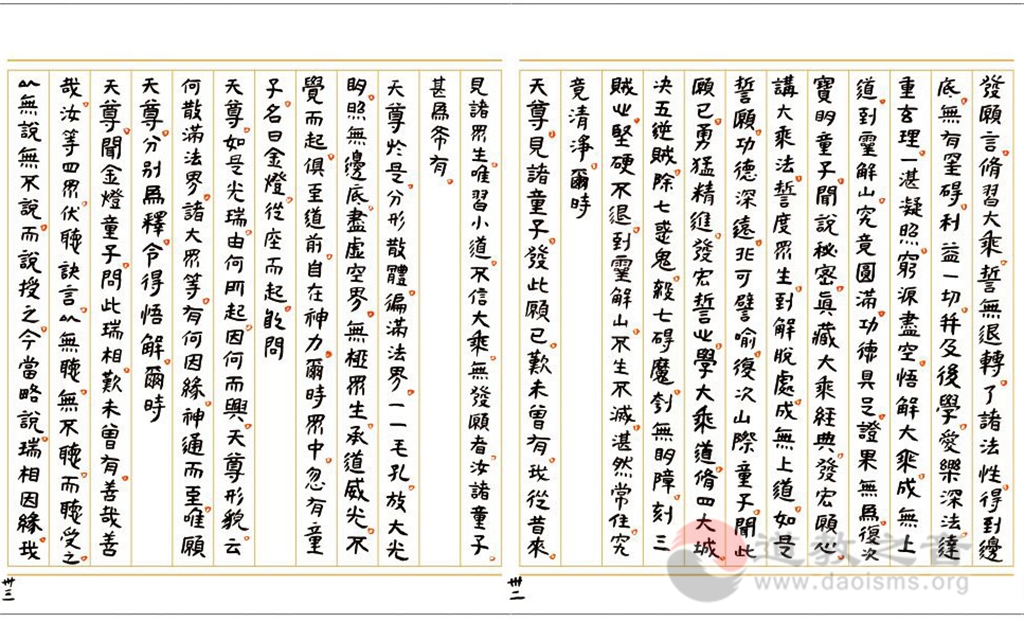 發願言。脩習大乘。誓無退轉。了諸法性。得到邊
底。無有罣碍。利益一切。并及後學。愛樂深法。達
重玄理。一湛凝照。窮源盡空。悟解大乘。成無上
道。到靈解山。究竟圓滿。功德具足。證果無為。復次
寶明童子。聞說秘密真藏。大乘經典。發宏願心。
講大乘法。誓度眾生。到解脫處。成無上道。如是
誓願。功德深遠。非可譬喻。復次山際童子。聞此
願已。勇猛精進。發宏誓心。學大乘道。脩四大城。
決五逆賊。除七惑鬼。殺七碍魔。剳無明障。刻三
賊心。堅硬不退。到靈解山。不生不滅。湛然常住。究
竟清淨。爾時
天尊。見諸童子。發此願已。歎未曾有。我從昔來。
卅二
見諸眾生。唯習小道。不信大乘。無發願者。汝諸童子。
甚為希有。
天尊於是。分形散體。徧滿法界。一一毛孔。放大光
明。照無邊底。盡虛空界。無極眾生。承道威光。不
覺而起。俱至道前。自在神力。爾時眾中。忽有童
子。名曰金燈。從座而起。啟問
天尊。如是光瑞。由何所起。因何而興。天尊形貌。云
何散滿法界。諸大眾等。有何因緣。神通而至。唯願
天尊。分別為釋。令得悟解。爾時
天尊。聞金燈童子。問此瑞相。歎未曾有。善哉善
哉。汝等四眾。伏聽訣言。以無聽。無不聽。而聽受之
以無說無不說。而說授之。今當略說。瑞相因緣。我
卅三
道教之音
www.daoisms.org